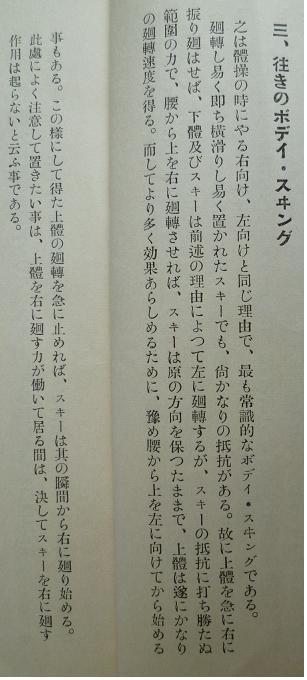 三、往きのボデイ・スヰング
之は體操の時にやる右向け、左向けと同じ理由で、最も常識的なボデイ・スヰングである。
廻轉し易く卽ち橫滑りし易く置かれたスキーでも、尙かなりの抵抗がある。故に上體を急に右に
振り廻はせば、下體及びスキーは前述の理由によつて左に廻轉するが、スキーの抵抗に打ち勝たぬ
範圍の力で、腰から上を右に廻轉させれば、スキーは原の方向を保つたままで、上體は遂にかなり
の廻轉速度を得る。而してより多く効果あらしめるために、豫め腰から上を左に向けてから始める
事もある。この樣にして得た上體の廻轉を急に止めれば、スキーは其の瞬間から右に廻り始める。
此處によく注意して置きたい事は、上體を右に廻す力が働いて居る間は、決してスキーを右に廻す
作用は起らないと云ふ事である。